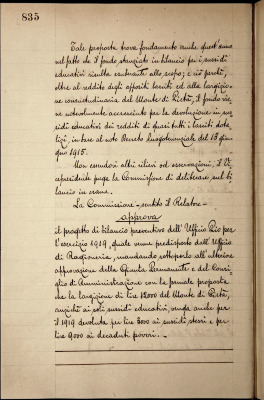 835
Tale proposta trova fondamento anche quest'anno
nel fatto che il fondo stanziato in bilancio per i sussidi
educativi risulta esuberante allo scopo; e ciò perchè,
oltre al reddito degli appositi lasciti ed alla largizio-
ne consuetudinaria del Monte di Pietà, il fondo vie-
ne notevolmente accresciuto per la devoluzione in sus-
sidi educativi dei redditi di quasi tutti i lasciti dota-
lizi, in base al noto Decreto Luogotenenziale del 15 giu-
gno 1915.
Non essendovi altri rilievi od osservazioni, il Vi-
cepresidente prega la Commissione di deliberare sul bi-
lancio in esame.
La Commissione - sentito il Relatore -
approva
il progetto di bilancio preventivo dell'Ufficio Pio per
l'esercizio 1919, quale venne predisposto dall'Ufficio
di Ragioneria, mandando sottoporlo all'ulteriore
approvazione della Giunta Permanente e del Consi-
glio di Amministrazione con la formale proposta
che la largizione di lire 12000 del Monte di Pietà,
anzichè ai soli sussidi educativi, venga anche per
il 1919 devoluta per lire 3000 ai sussidi stessi e per
lire 9000 ai decaduti poveri. -